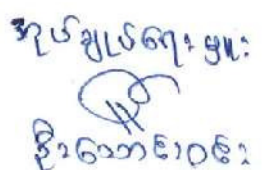 အုပ်ချုပ်ရေးမှူး
ဦးသောင်းဝင်း